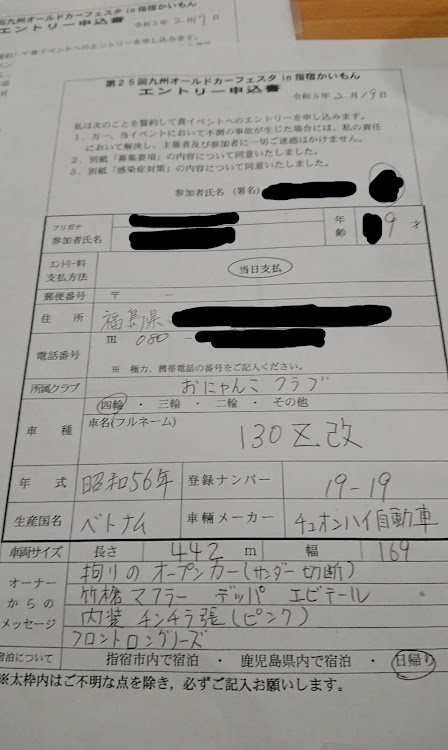 エントリー申込書
令和5年2月19日
第25回九州オールドカーフェスタ in 指宿かいもん
エントリー申込書
令和5年2月19日
私は次のことを誓約して貴イベントへのエントリーを申し込みます。
1．万一、当イベントにおいて不測の事故が生じた場合には、私の責任
において解決し、主催者及び参加者に一切ご迷惑はかけません。
2．別紙「募集要項」の内容について同意いたしました。
3．別紙「感染症対策」の内容について同意いたしました。
参加者氏名（署名）
フリガナ
参加者氏名
年齢
9才
エントリー料
支払方法
当日支払
郵便番号 〒 －
住所 福島県
電話番号 ℡ 080 -
※ 極力、携帯電話の番号をご記入ください。
所属クラブ おにゃんこクラブ
車種 四輪 ・ 三輪 ・ 二輪 ・ その他
車名(フルネーム)
130Z改
年式 昭和56年 登録ナンバー 19-19
生産国名 ベトナム 車輌メーカー チュオンハイ自動車
車両サイズ 長さ 442 m 幅 169
オーナー
からの
メッセージ
拘りのオープンカー(サンダー切断)
竹槍マフラー デッパ エビテール
内装 チンチラ張(ピンク)
フロントロングノーズ
宿泊について 指宿市内で宿泊 ・ 鹿児島県内で宿泊 ・ 日帰り
※太枠内はご不明な点を除き，必ずご記入お願いします。